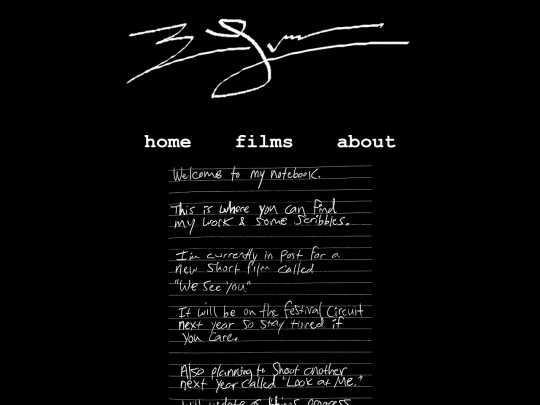 home films about
Welcome to my notebook.
This is where you can find
my work & some scribbles.
I'm currently in post for a
new short film called
"We See You"
It will be on the festival circuit
next year so stay tuned if
you care.
Also planning to shoot another
next year called "Look at Me."